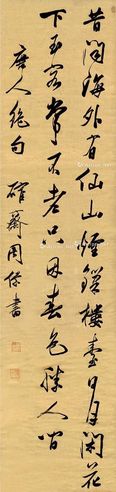 昔闻海外有仙山烟锁楼台日月闲花
下玉容常不老只因春色胜人间
唐人绝句 確齋周保書